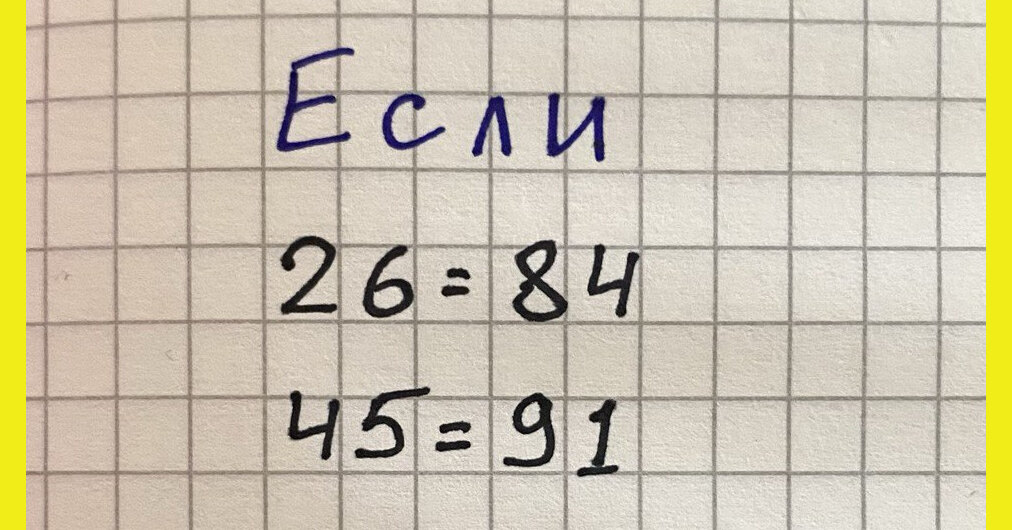 Если
26=84
45=91